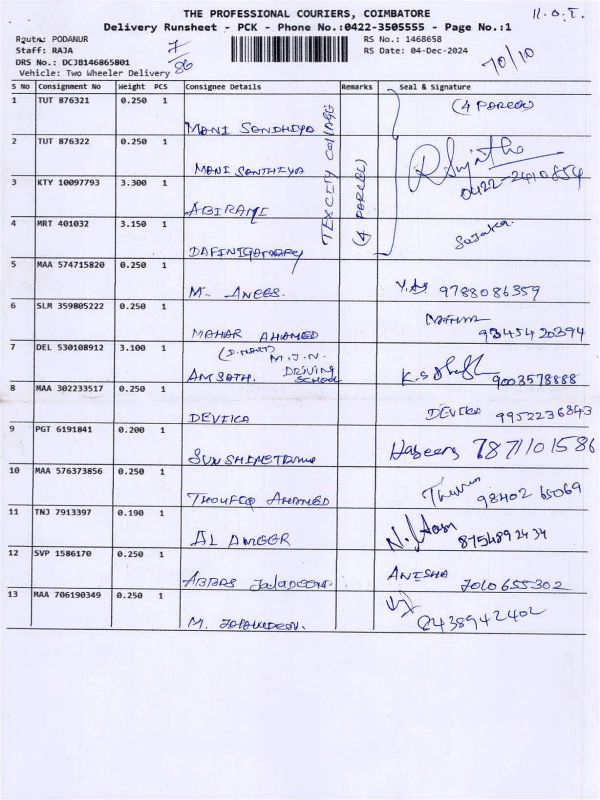 THE PROFESSIONAL COURIERS, COIMBATORE
Delivery Runsheet - PCK - Phone No.:0422-3505555 - Page No.:1
Route: PODANUR RS No.: 1468658
Staff: RAJA RS Date: 04-Dec-2024
DRS No.: DCJB146865801
Vehicle: Two Wheeler Delivery
7/86
70/10
S No Consignment No Weight PCS Consignee Details Remarks Seal & Signature
1 TUT 876321 0.250 1 MANI SANDHIYA (4 PARCEL)
2 TUT 876322 0.250 1 MANI SANTHIYA 0422-2410854
3 KTY 10097793 3.300 1 ABIRAMI
4 MRT 401032 3.150 1 Sujatha
(4 PARCEL)
5 MAA 574715820 0.250 1 M. ANEES. 9788086359
6 SLM 359805222 0.250 1 MAHAR AHAMED 9345420394
7 DEL 530108912 3.100 1 AMJATH. M.J.N. DRIVING SCHOOL 9003578888
8 MAA 302233517 0.250 1 DEVIKA DEVIKA 9952236843
9 PGT 6191841 0.200 1 7871101586
10 MAA 576373856 0.250 1 THOUFIQ AHAMED 98402 65069
11 TNJ 7913397 0.190 1 AL AMEER 8754892434
12 SVP 1586170 0.250 1 ABBAS ANISHA
13 MAA 706190349 0.250 1 M.